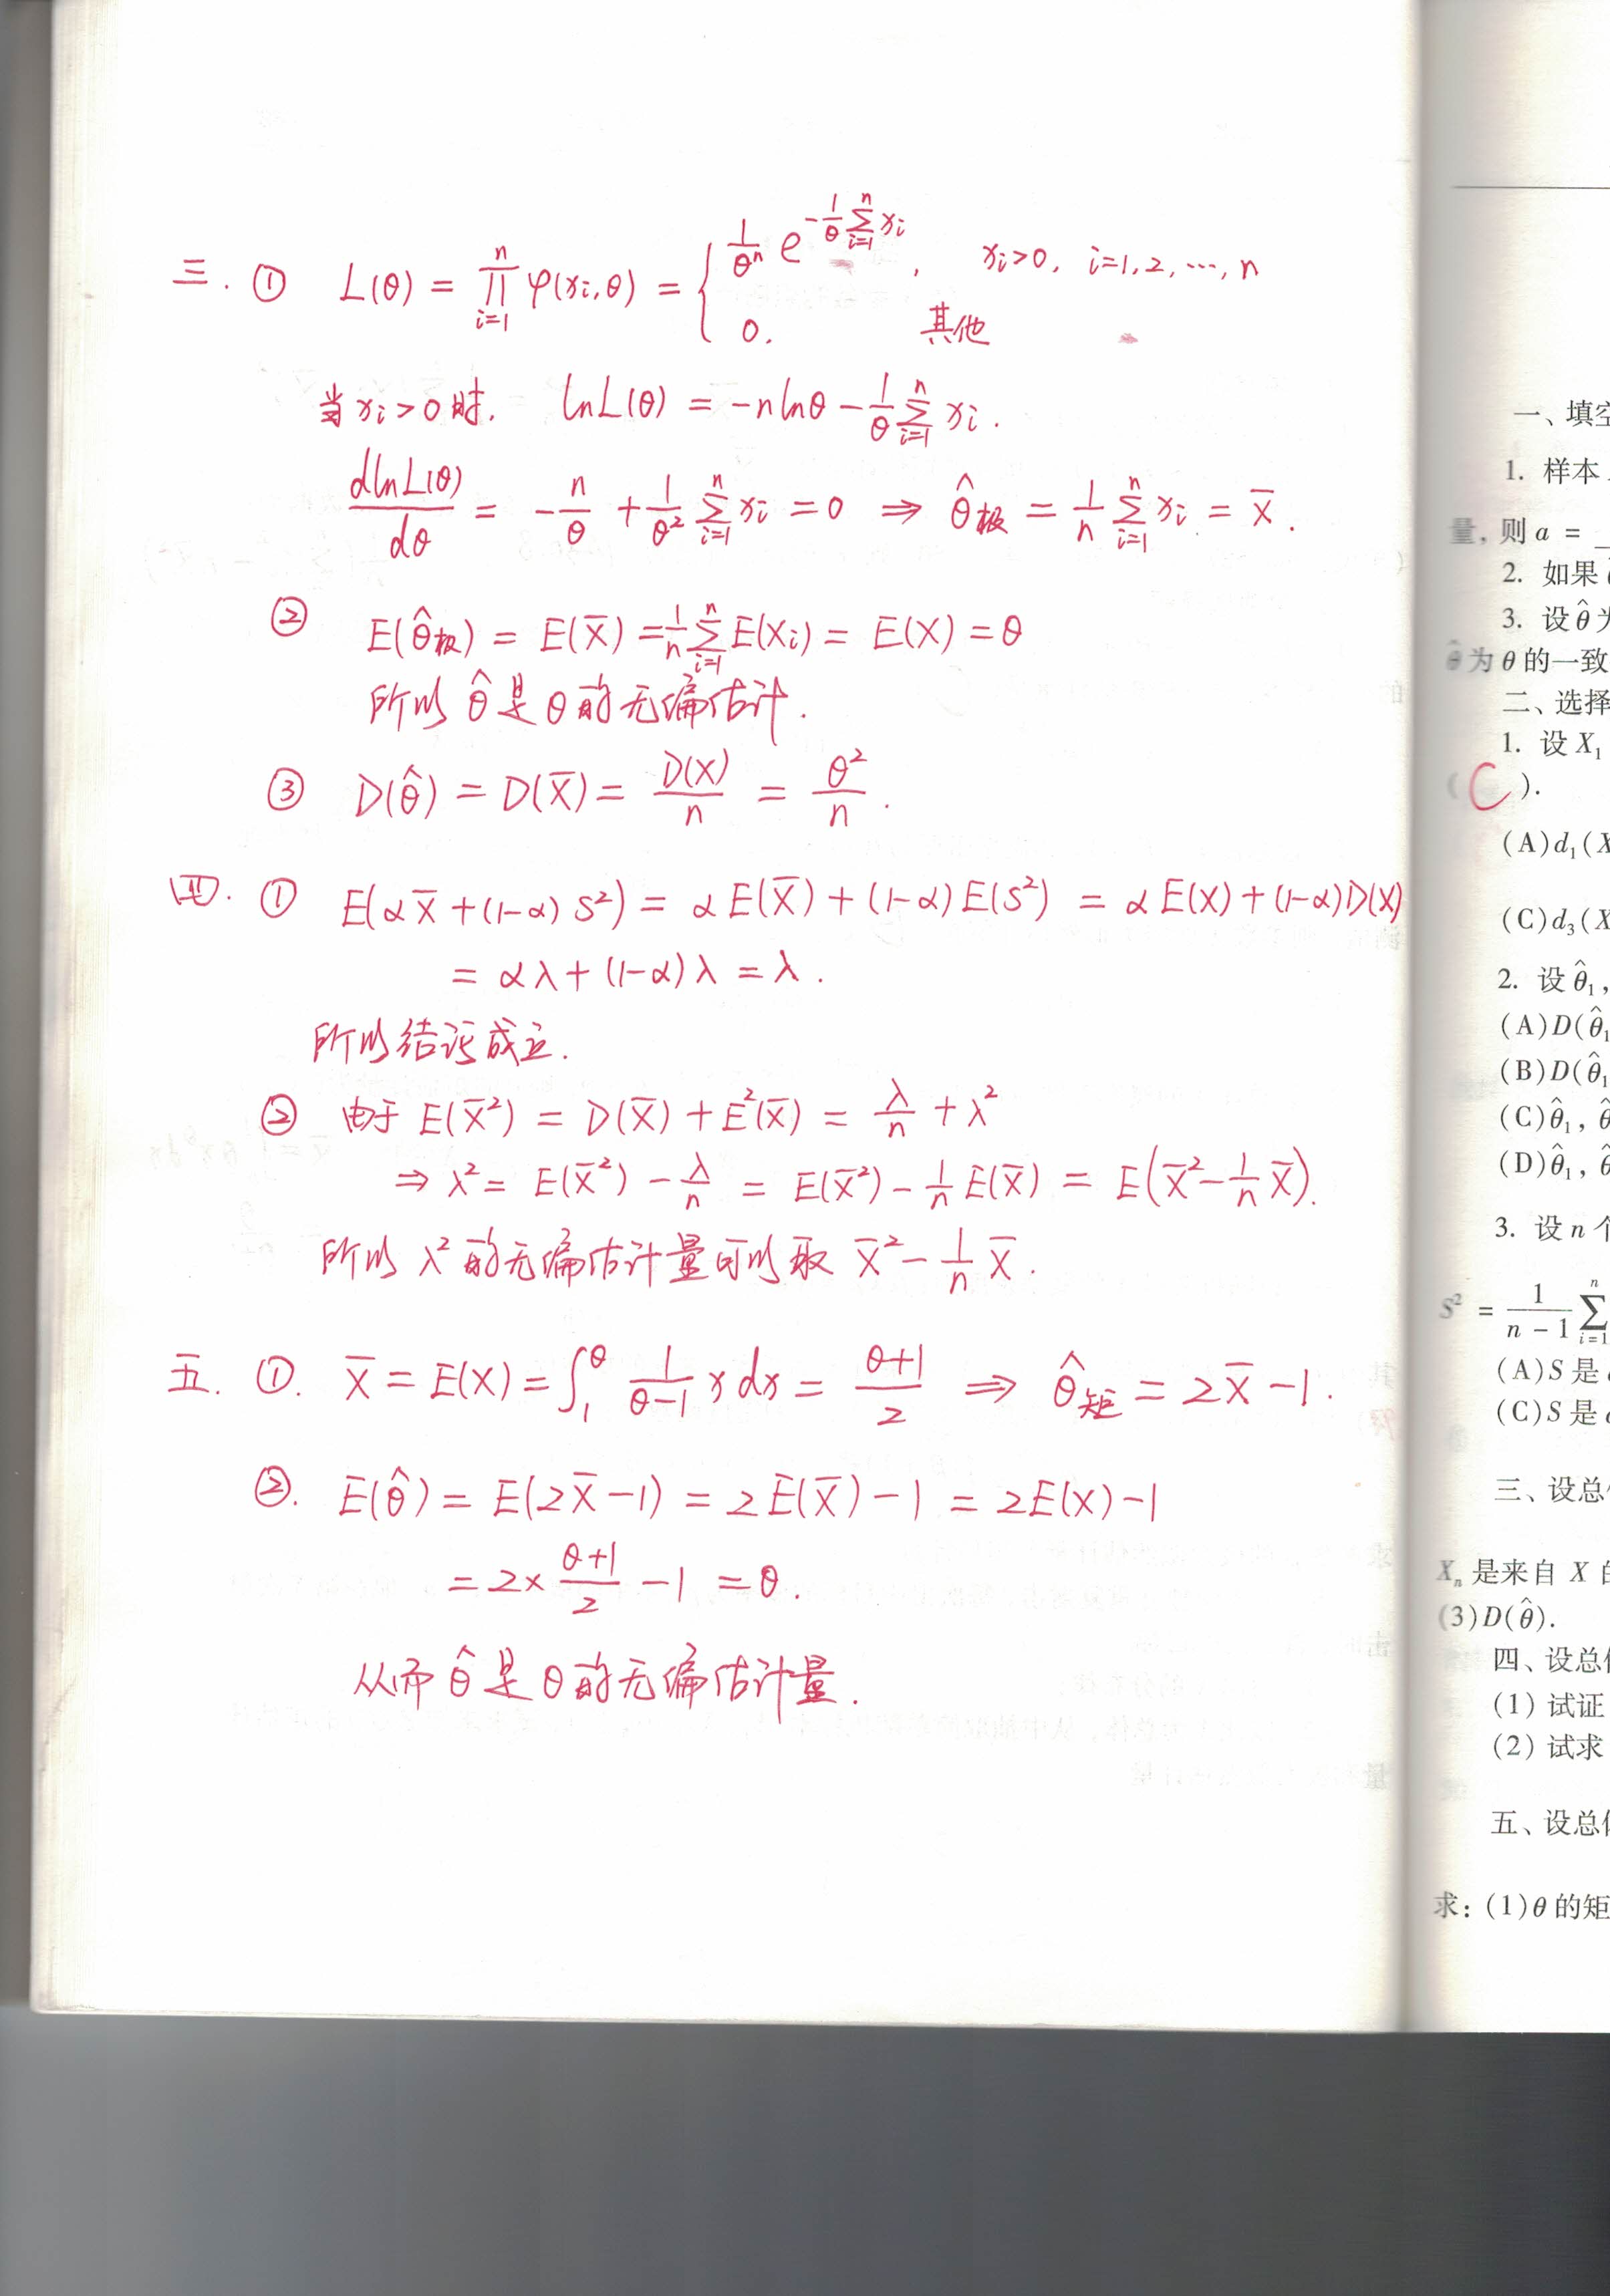 三. ① L(θ) = ∏_{i=1}^{n} φ(xi,θ) = { 1/θ^n e^{-1/θ ∑_{i=1}^{n} xi}, xi>0, i=1,2,…,n
0. 其他
当xi>0时. lnL(θ) = -nlnθ - 1/θ ∑_{i=1}^{n} xi.
dlnL(θ)/dθ = -n/θ + 1/θ² ∑_{i=1}^{n} xi = 0 ⇒ θ̂极 = 1/n ∑_{i=1}^{n} xi = x̄.
② E(θ̂极) = E(X̄) = 1/n ∑_{i=1}^{n} E(Xi) = E(X) = θ
所以 θ̂ 是 θ 的无偏估计.
③ D(θ̂) = D(X̄) = D(X)/n = θ²/n.
四. ① E(αX̄+(1-α)S²) = αE(X̄)+(1-α)E(S²) = αE(X)+(1-α)D(X)
= αλ+(1-α)λ = λ.
所以结论成立.
② 由于 E(X̄²) = D(X̄)+E²(X̄) = λ/n + λ²
⇒ λ² = E(X̄²) - λ/n = E(X̄²) - 1/n E(X̄) = E(X̄² - 1/n X̄).
所以 λ² 的无偏估计量可以取 X̄² - 1/n X̄.
五. ①. X̄ = E(X) = ∫_1^θ 1/(θ-1) x dx = (θ+1)/2 ⇒ θ̂矩 = 2X̄-1.
②. E(θ̂) = E(2X̄-1) = 2E(X̄)-1 = 2E(X)-1
= 2×(θ+1)/2 -1 = θ.
从而 θ̂ 是 θ 的无偏估计量.
一、填空
1. 样本
量, 则 a =
2. 如果
3. 设 θ̂ 为
θ̂ 为 θ 的一致
二、选择
1. 设 X₁
( C ).
(A) d₁(X
(C) d₃(X
2. 设 θ̂₁,
(A) D(θ̂₁
(B) D(θ̂₁
(C) θ̂₁, θ̂
(D) θ̂₁, θ̂
3. 设 n 个
S² = 1/(n-1) ∑_{i=1}^{n}
(A) S 是
(C) S 是
三、设总体
Xₙ 是来自 X 的
(3) D(θ̂).
四、设总体
(1) 试证
(2) 试求
五、设总体
求: (1) θ 的矩